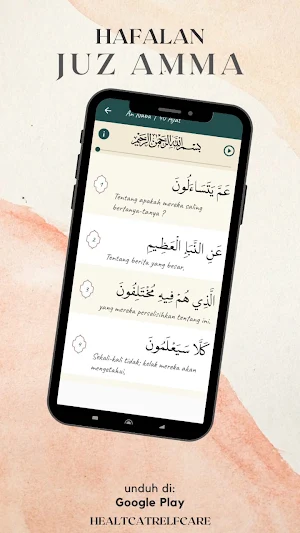 HAFALAN
JUZ AMMA
An Naba | 40 Ayat
بِسْمِ اللَّهِ الرَّحْمَٰنِ الرَّحِيْمِ
عَمَّ يَتَسَاءَلُونَ
1
Tentang apakah mereka saling
bertanya-tanya ?
عَنِ النَّبَإِ الْعَظِيمِ
2
Tentang berita yang besar,
الَّذِي هُمْ فِيهِ مُخْتَلِفُونَ
3
yang mereka perselisihkan tentang ini.
كَلَّا سَيَعْلَمُونَ
4
Sekali-kali tidak; kelak mereka akan
mengetahui,
unduh di:
Google Play
HEALTCATRELFCARE